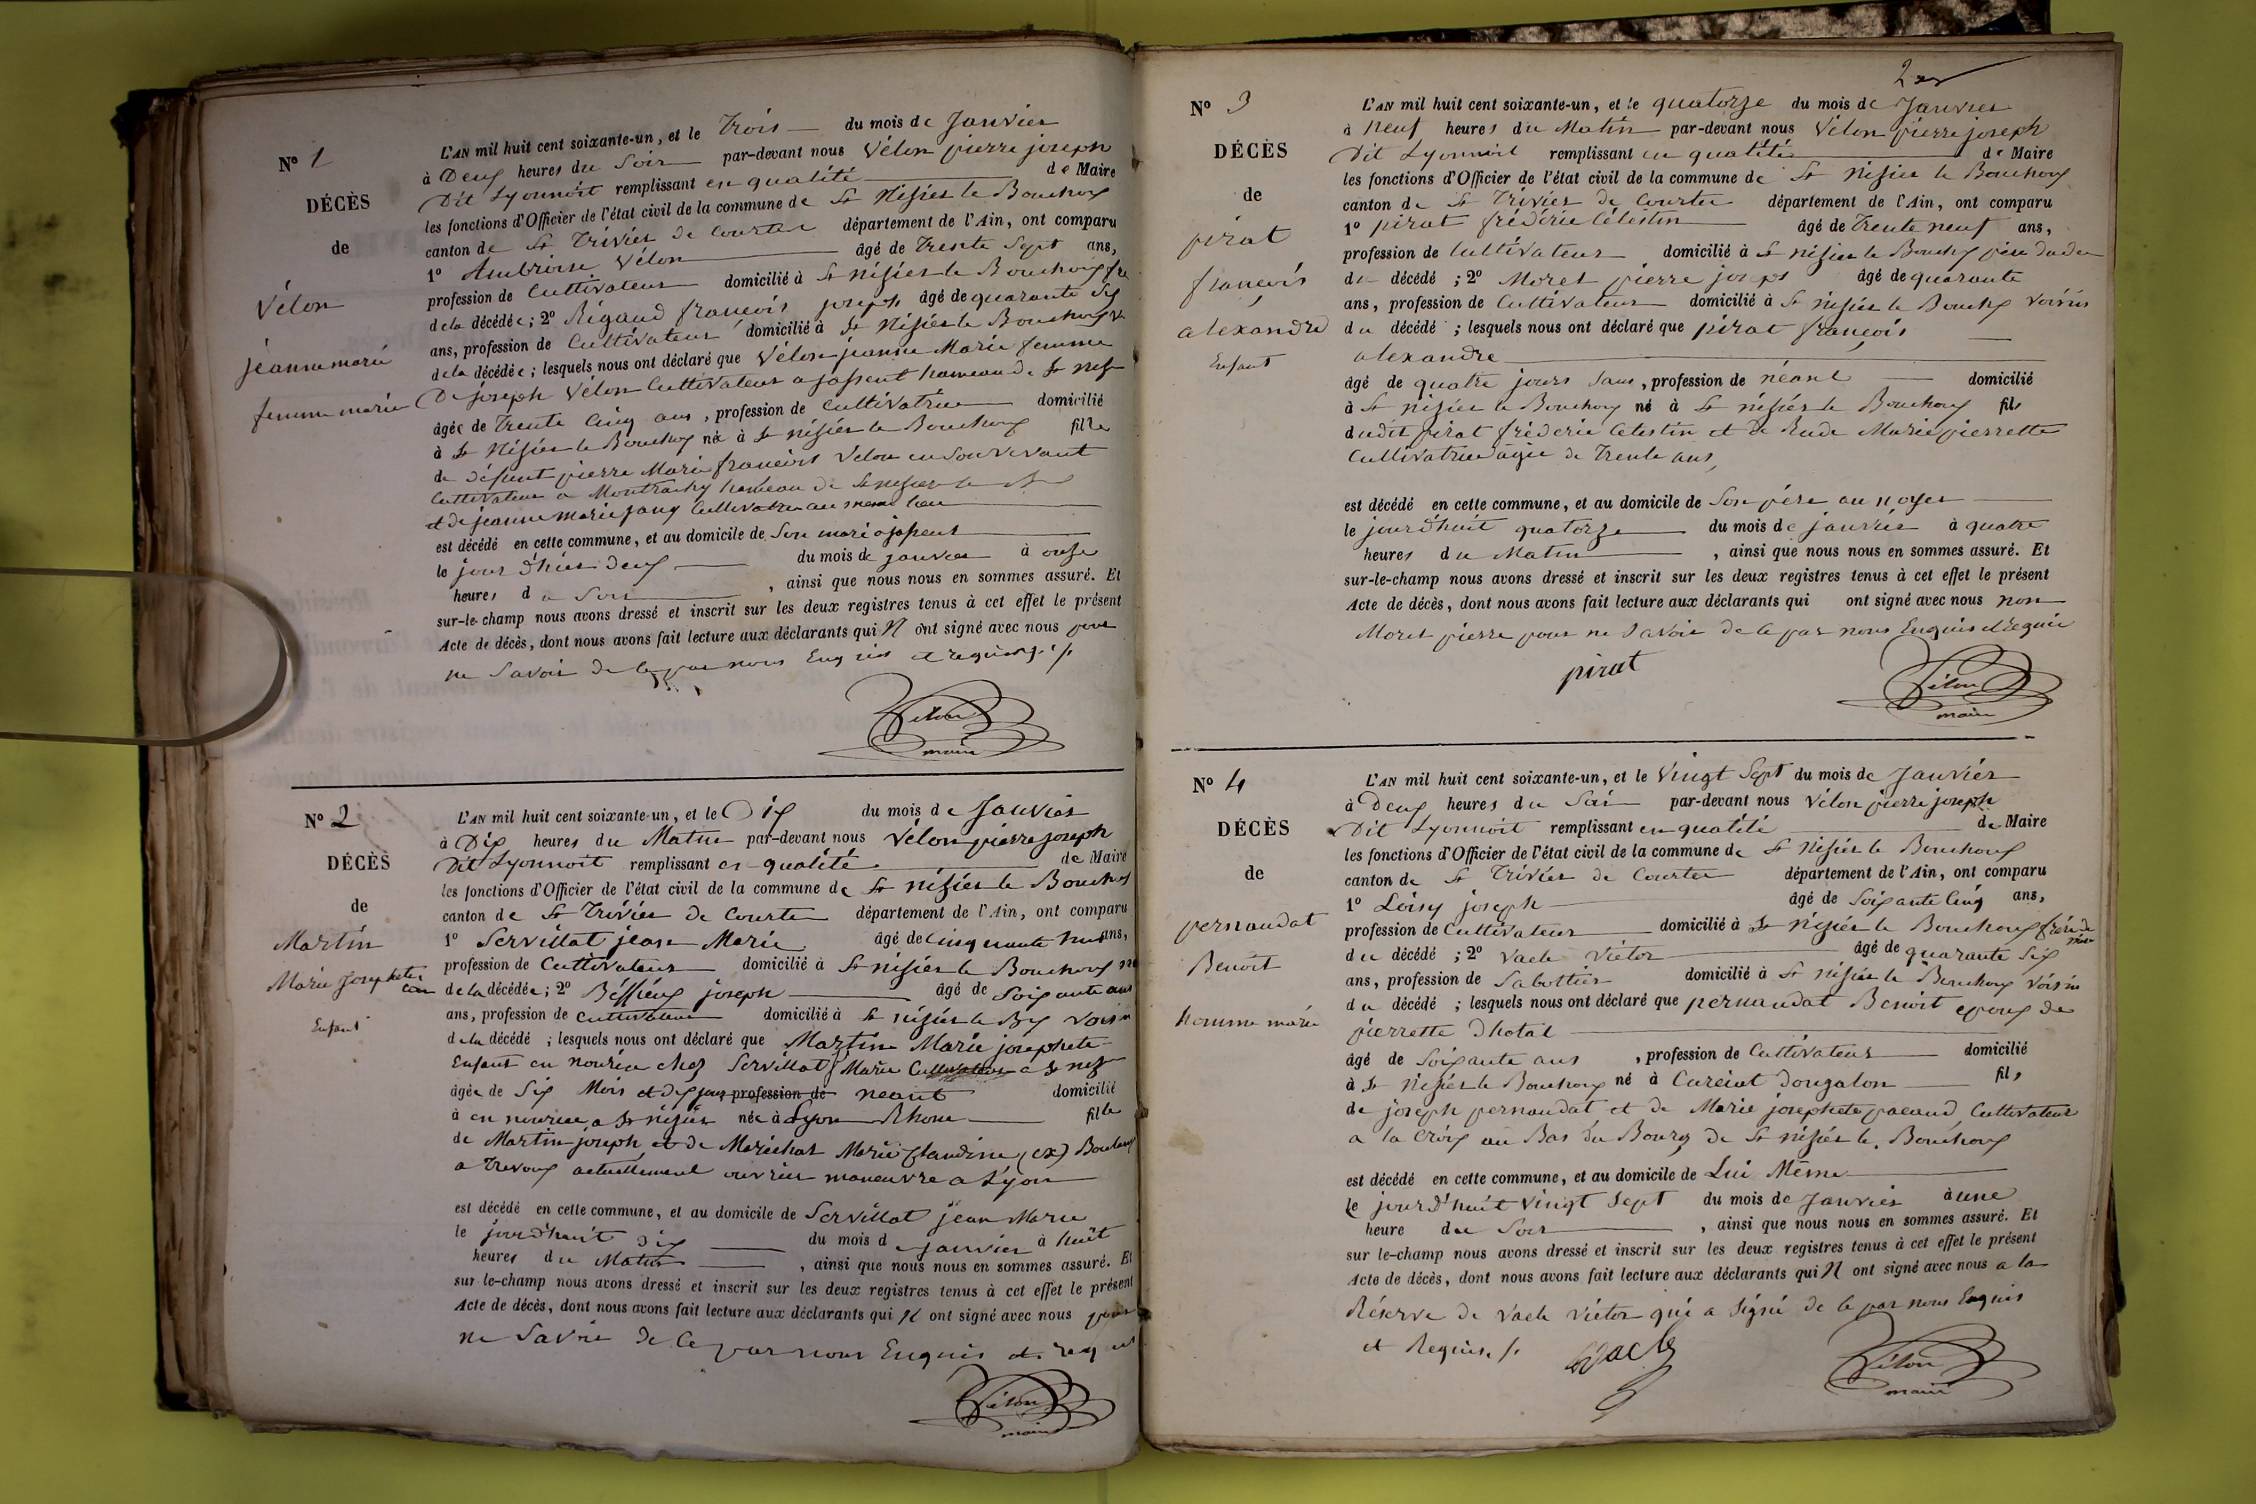 N° 1
DÉCÈS
de
Vélon
jeanne marie
femme mariée
L'AN mil huit cent soixante-un, et le Trois du mois de Janvier
à Deux heures du Soir par-devant nous Vélon pierre joseph
Dit Lyonnoit remplissant en qualité de Maire
les fonctions d'Officier de l'état civil de la commune de St Nisiés le Bouchoux
canton de St Triviés de Courtes département de l'Ain, ont comparu
1° Ambroise Vélon âgé de Trente Sept ans,
profession de Cultivateur domicilié à St nisiés le Bouchoux
de la décédée ; 2° Rigaud françois joseph âgé de quarante Six
ans, profession de Cultivateur domicilié à St Nisiés le Bouchoux
de la décédée ; lesquels nous ont déclaré que Vélon jeanne Marie femme
De joseph Vélon Cultivateur a hameau de St
âgée de Trente Cinq ans, profession de Cultivatrice domicilié
à St Nisiés le Bouchoux né à St nisiés le Bouchoux fille
de défunt pierre Marie françois Vélon en Son Vivant
Cultivateur a hameau de
et de jeanne marie Cultivatrice au meme lieu
est décédé en cette commune, et au domicile de Son mari a
le jour d'hier deux du mois de janvier à onze
heures du Soir , ainsi que nous nous en sommes assuré. Et
sur-le-champ nous avons dressé et inscrit sur les deux registres tenus à cet effet le présent
Acte de décès, dont nous avons fait lecture aux déclarants qui N' ont signé avec nous pour
ne Savoir de ce par nous Enquis et requis ./.
Vélon
maire
N° 2
DÉCÈS
de
Martin
Marie Josephete
Enfant
L'AN mil huit cent soixante-un, et le Dix du mois de Janvier
à Dix heures du Matin par-devant nous Vélon pierre joseph
Dit Lyonnoit remplissant en qualité de Maire
les fonctions d'Officier de l'état civil de la commune de St nisiés le Bouchoux
canton de St Triviés de Courtes département de l'Ain, ont comparu
1° Servillat jean Marie âgé de Cinquante ans,
profession de Cultivateur domicilié à St nisiés le Bouchoux
de la décédée ; 2° joseph âgé de Soixante ans
ans, profession de Cultivateur domicilié à St nisiés le Bx voisin
de la décédé ; lesquels nous ont déclaré que Martin Marie josephete
Enfant en nourice chez Servillat Marie a St
âgée de Six Mois et dix jours profession de néant domicilié
à en nourice a St nisiés née à Lyon Rhone fille
de Martin joseph et de Maréchat Marie Claudine (ex)
a Trevoux actuellement ouvrier manœuvre a Lyon
est décédé en cette commune, et au domicile de Servillat jean Marie
le jourd'huit dix du mois de janvier à huit
heures du Matin , ainsi que nous nous en sommes assuré. Et
sur-le-champ nous avons dressé et inscrit sur les deux registres tenus à cet effet le présent
Acte de décès, dont nous avons fait lecture aux déclarants qui N' ont signé avec nous pour
ne Savoir de Ce par nous Enquis et requis
Vélon
maire
2
N° 3
DÉCÈS
de
pirat
françois
alexandre
Enfant
L'AN mil huit cent soixante-un, et le quatorze du mois de Janvier
à neuf heures du Matin par-devant nous Vélon pierre joseph
Dit Lyonnoit remplissant en qualité de Maire
les fonctions d'Officier de l'état civil de la commune de St Nisiés le Bouchoux
canton de St Triviés de Courtes département de l'Ain, ont comparu
1° pirat fréderic Célestin âgé de Trente neuf ans,
profession de Cultivateur domicilié à St nisiés le Bouchx père dudu
du décédé ; 2° Moret pierre joseph âgé de quarante
ans, profession de Cultivateur domicilié à St nisiés le Bouchx voisin
du décédé ; lesquels nous ont déclaré que pirat françois
alexandre
âgé de quatre jours sans, profession de néant domicilié
à St nisiés le Bouchoux né à St nisiés le Bouchoux fils
dudit pirat fréderic Célestin et de Rude Marie pierrette
Cultivatrice agée de Trente ans,
est décédé en cette commune, et au domicile de Son père au noyer
le jourd'huit quatorze du mois de janvier à quatre
heures du Matin , ainsi que nous nous en sommes assuré. Et
sur-le-champ nous avons dressé et inscrit sur les deux registres tenus à cet effet le présent
Acte de décès, dont nous avons fait lecture aux déclarants qui ont signé avec nous non
Moret pierre pour ne Savoir de ce par nous Enquis et requis
pirat
Vélon
maire
N° 4
DÉCÈS
de
pernaudat
Benoit
homme marié
L'AN mil huit cent soixante-un, et le Vingt Sept du mois de Janvier
à Deux heures du Soir par-devant nous Vélon pierre joseph
Dit Lyonnoit remplissant en qualité de Maire
les fonctions d'Officier de l'état civil de la commune de St Nisiés le Bouchoux
canton de St Triviés de Courtes département de l'Ain, ont comparu
1° Loisy joseph âgé de Soixante Cinq ans,
profession de Cultivateur domicilié à St Nisiés le Bouchoux frère de
mère
du décédé ; 2° Vacle Victor âgé de quarante Six
ans, profession de Sabottier domicilié à St nisiés le Bouchoux voisin
du décédé ; lesquels nous ont déclaré que pernaudat Benoit epoux de
pierrette Dhotal
âgé de Soixante ans , profession de Cultivateur domicilié
à St Nisiés le Bouchoux né à Curciat Dongalon fils
de joseph pernaudat et de Marie josephete pacaud Cultivateur
a la Croix au Bas du Bourg de St nisiés le Bouchoux
est décédé en cette commune, et au domicile de Lui Même
le jourd'huit vingt Sept du mois de Janvier à une
heure du Soir , ainsi que nous nous en sommes assuré. Et
sur le-champ nous avons dressé et inscrit sur les deux registres tenus à cet effet le présent
Acte de décès, dont nous avons fait lecture aux déclarants qui N' ont signé avec nous a la
Réserve de Vacle Victor qui a Signé de ce par nous Enquis
et Requis ./.
Vacle
Vélon
maire